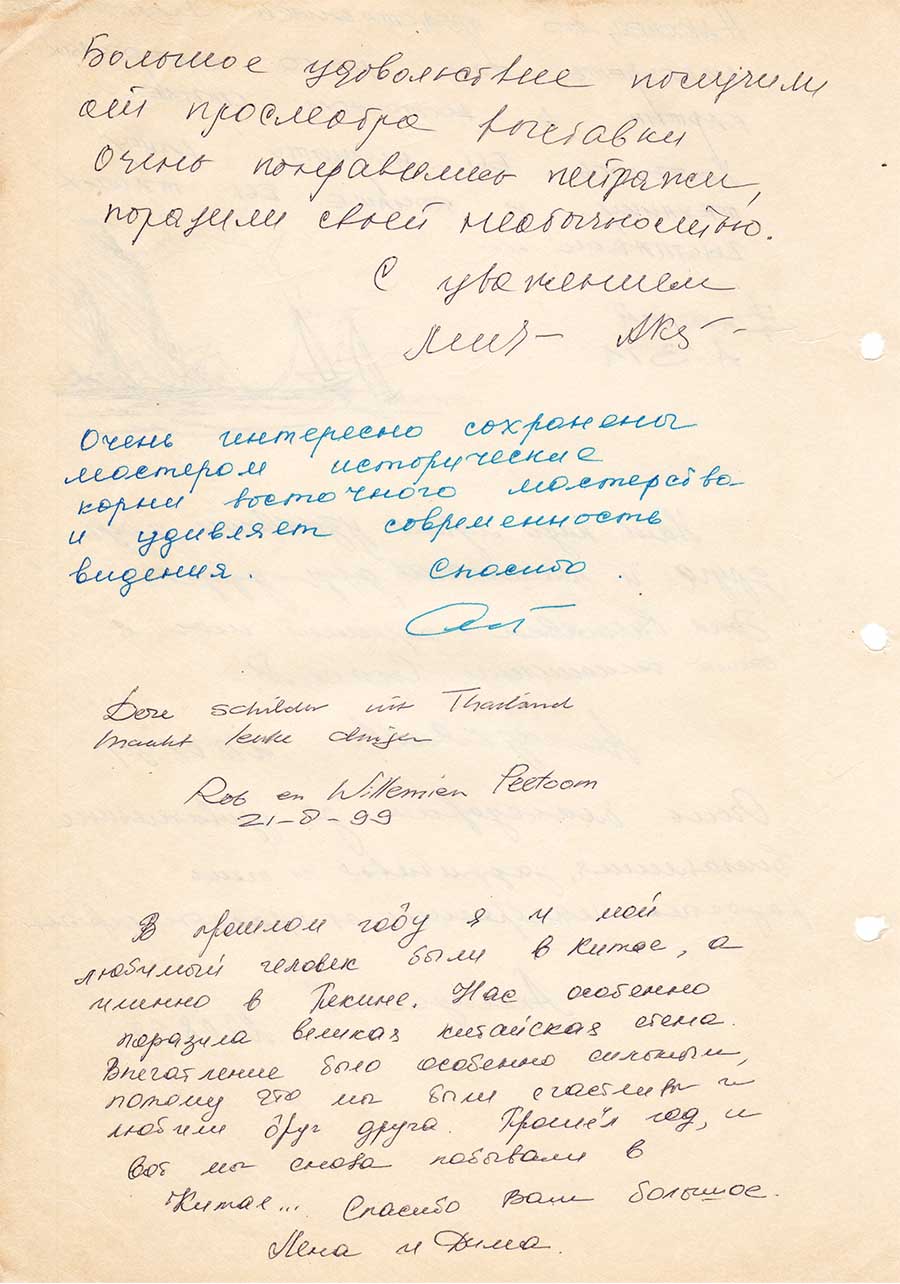 Большое удовольствие получили
от просмотра выставки
Очень понравились пейзажи,
поразили своей необычностью.
С уважением
Очень интересно сохранены
мастером исторические
корни восточного мастерства
и удивляет современность
видения. Спасибо.
Deze schilder uit Thailand
maakt leuke dingen
Rob en Willemien Peetoom
21-8-99
В прошлом году я и мой
любимый человек были в Китае, а
именно в Пекине. Нас особенно
поразила великая китайская стена.
Впечатление было особенно сильным,
потому что мы были счастливы и
любили друг друга. Прошёл год, и
вот мы снова побывали в
Китае... Спасибо Вам большое.
Лена и Дима.